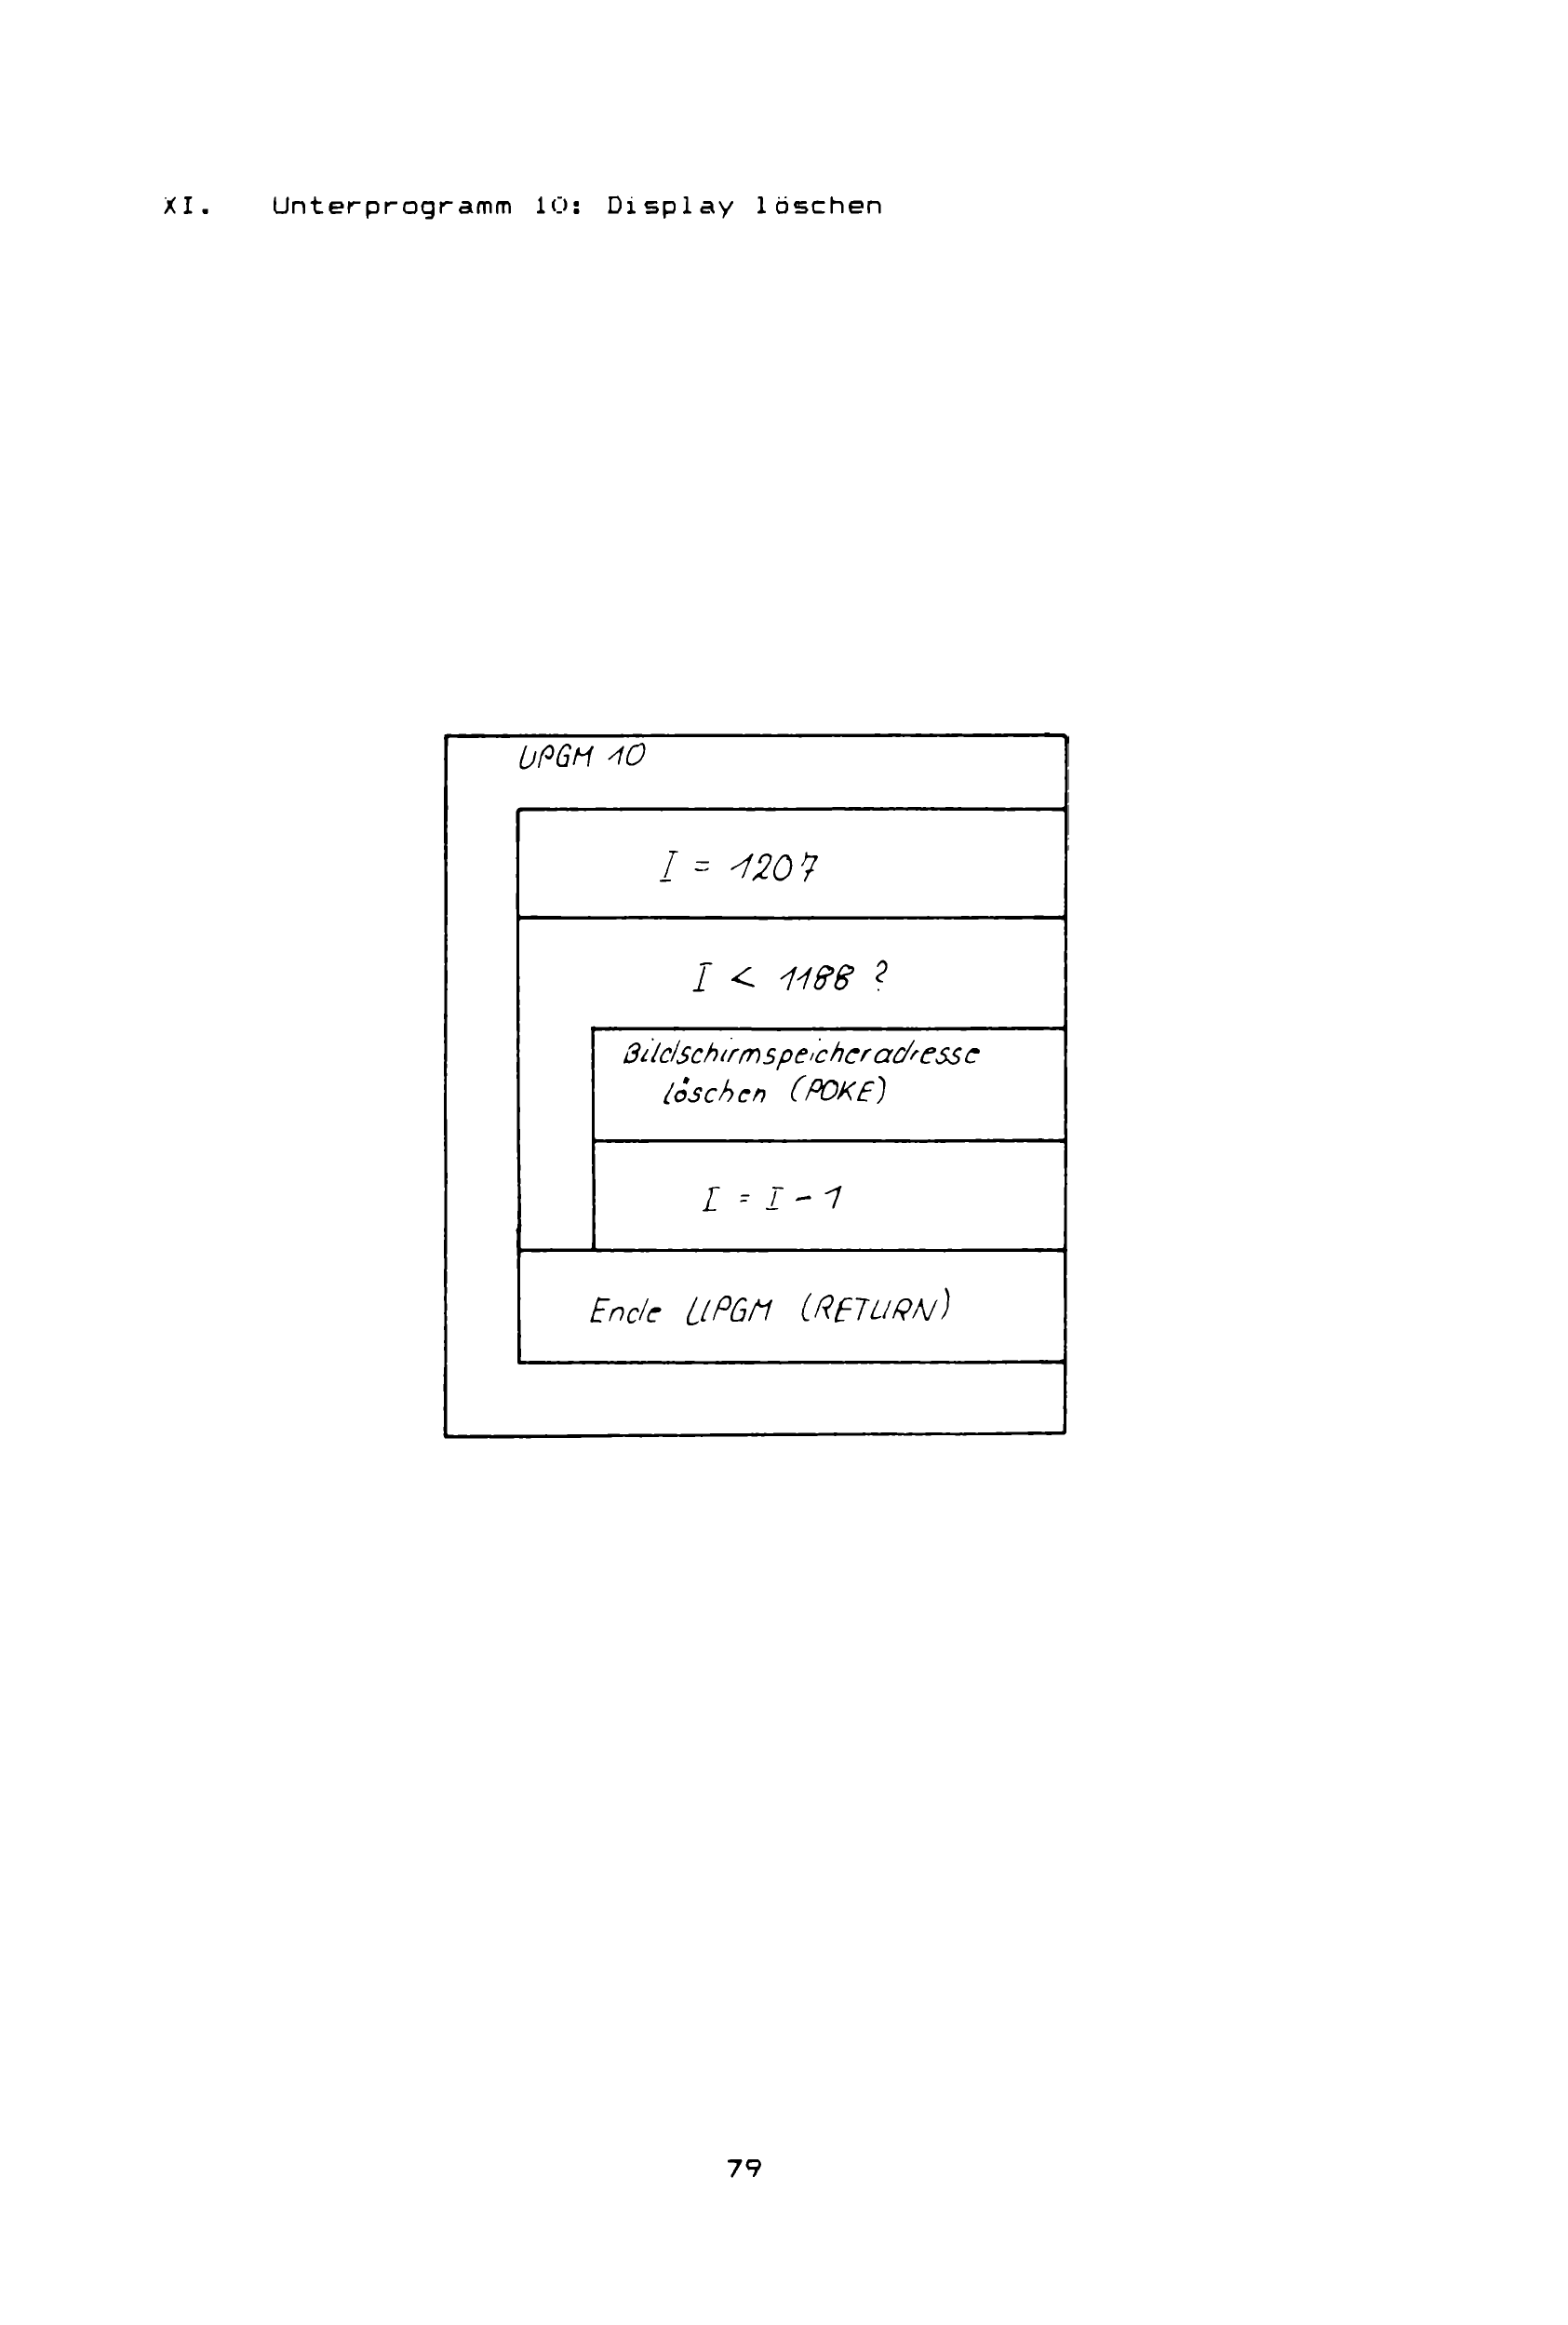 XI. Unterprogramm 10: Display löschen
UPGM 10
I = 1207
I < 1188 ?
Bildschirmspeicheradresse
löschen (POKE)
I = I - 1
Ende UPGM (RETURN)
79